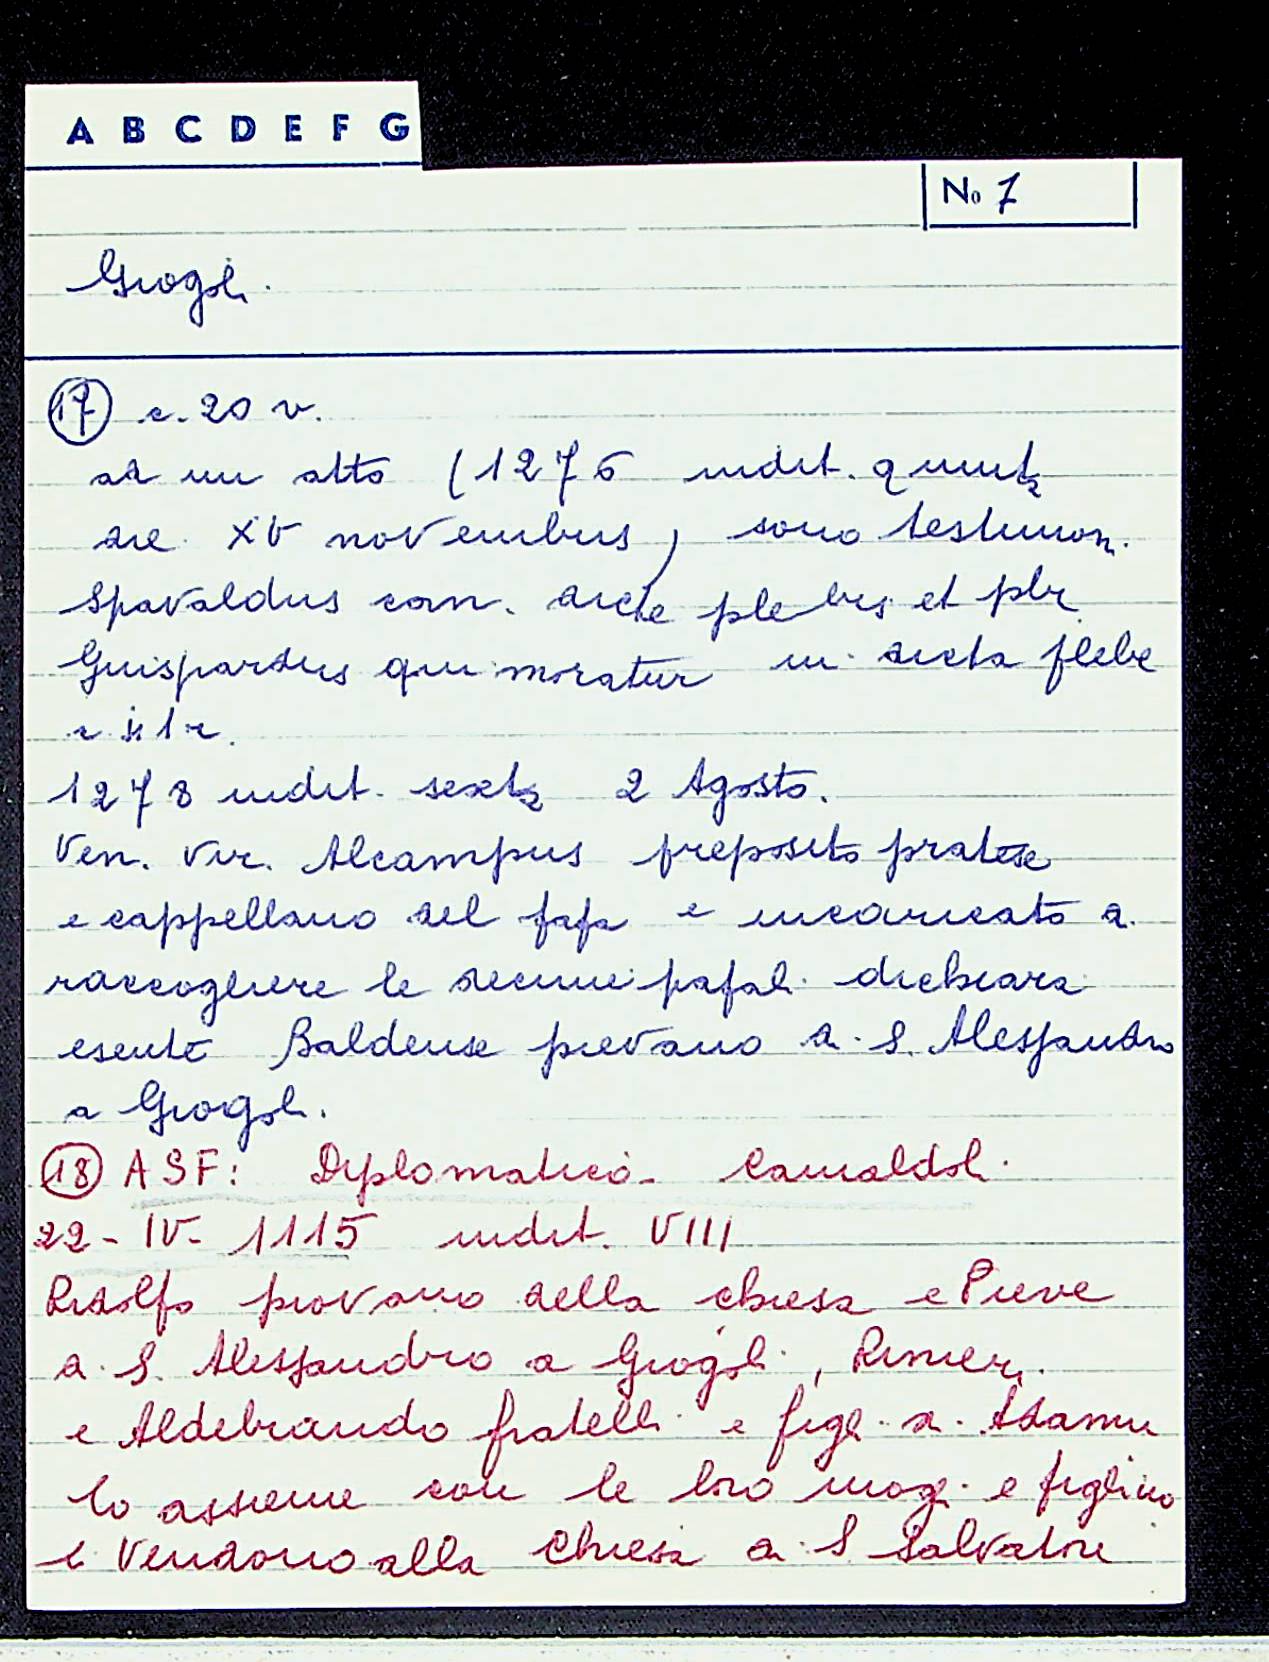 A B C D E F G
No 7
Giogoli
17 c. 20 v.
ad un atto (1276 indit. quinta
die XV novembris) sono testimoni
Spavaldus can. dicte plebis et pbr
Guispardus qui moratur in dicta plebe
1278 indit. sexta 2 Agosto.
Ven. vir. Alcampus preposito pratese
e cappellano del papa e incaricato di
raccogliere le decime papali dichiara
esente Baldense pievano di S. Alessandro
a Giogoli.
18 ASF: Diplomatico. Camaldoli
22-IV-1115 indit. VIII
Ridolfo piovano della chiesa e Pieve
di S. Alessandro a Giogoli, Rinieri
e Aldebrando fratelli e figli di Adamu
lo assieme con le loro mogli e figli
vendono alla chiesa di S Salvatore